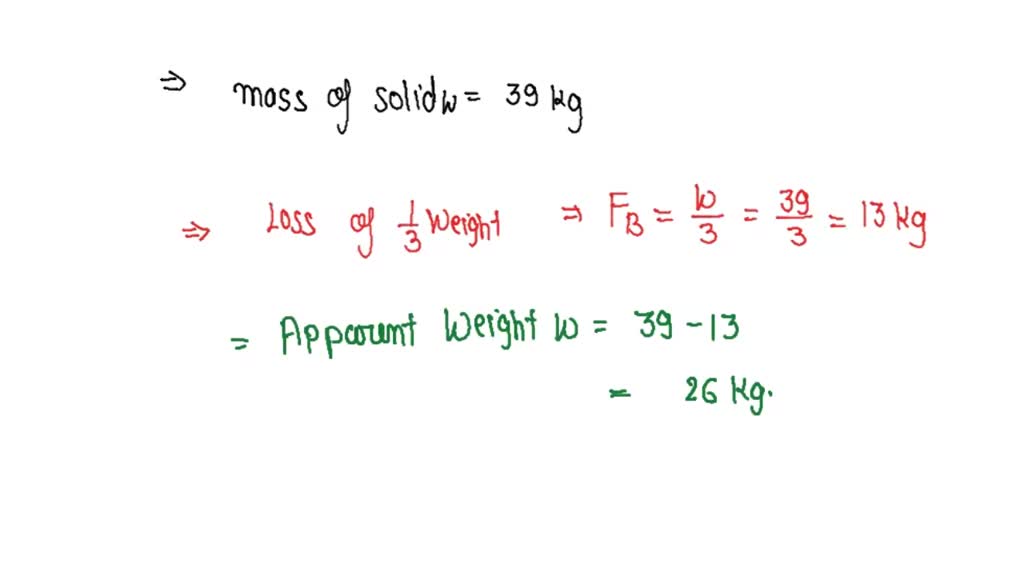 ⇒ mass of solid w = 39 kg
⇒ Loss of 1/3 Weight ⇒ F_B = W/3 = 39/3 = 13 kg
= Apparunt Weight w = 39 - 13
= 26 Kg.